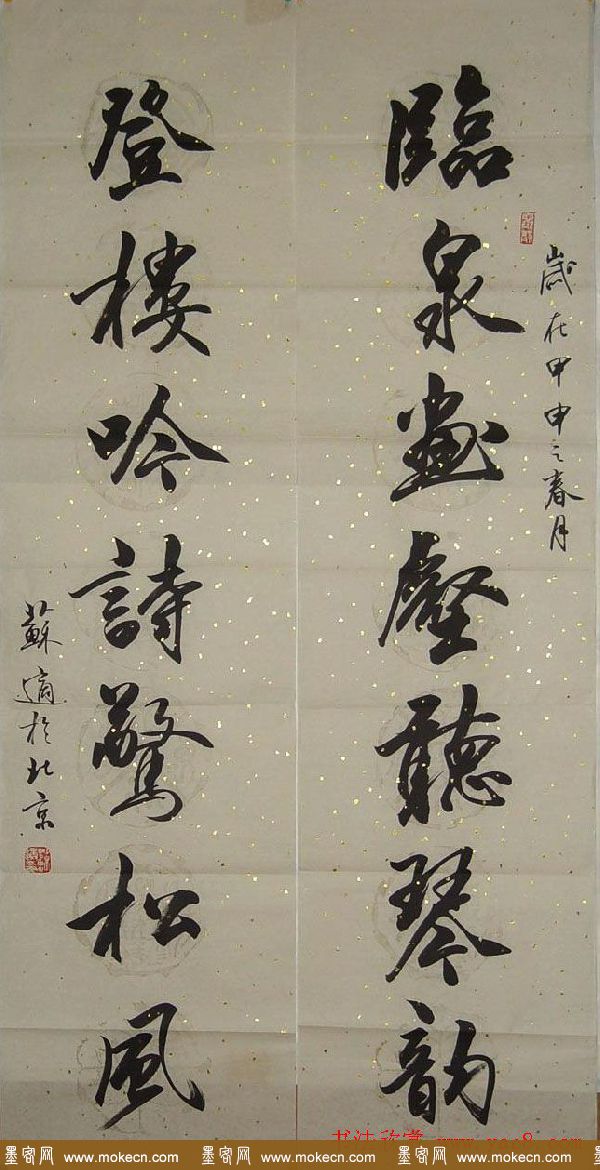 歲在甲申之春月
臨泉畫壑聽琴韻
登樓吟詩驚松風
蘇適於北京
书法欣赏
墨客网 www.mokecn.com 墨客网 www.mokecn.com 墨客网 www.mokecn.com